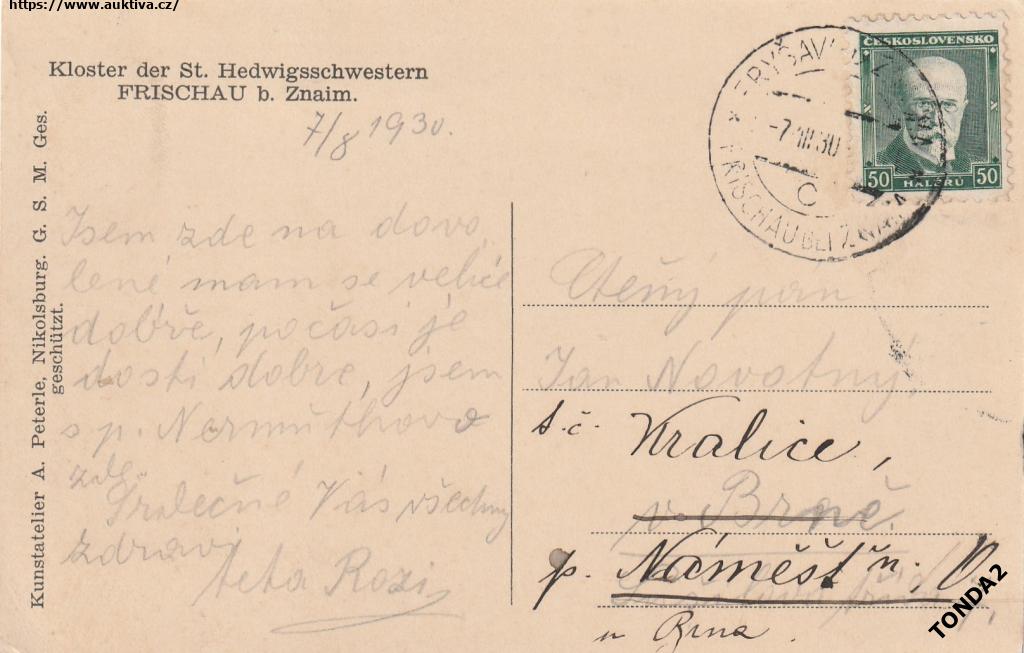 https://www.auktiva.cz/
Kloster der St. Hedwigsschwestern
FRISCHAU b. Znaim.
7/8 1930.
ČESKOSLOVENSKO
50 HALÉŘŮ 50
-7.VIII.30
C
FRISCHAU BEI ZNAIM
Kunstatelier A. Peterle, Nikolsburg. G. S. M. Ges.
geschützt.
Jsem zde na dovo
lené mam se velice
dobře, počasí je
dosti dobré, jsem
s p. Nermuthovo
zde.
Srdečně Vás všechny
zdraví
teta Rozi
Ctěný pan
Jan Novotný,
t.č. Kralice,
v Brně.
p. Náměšť n. O
u Brna.
TONDA2